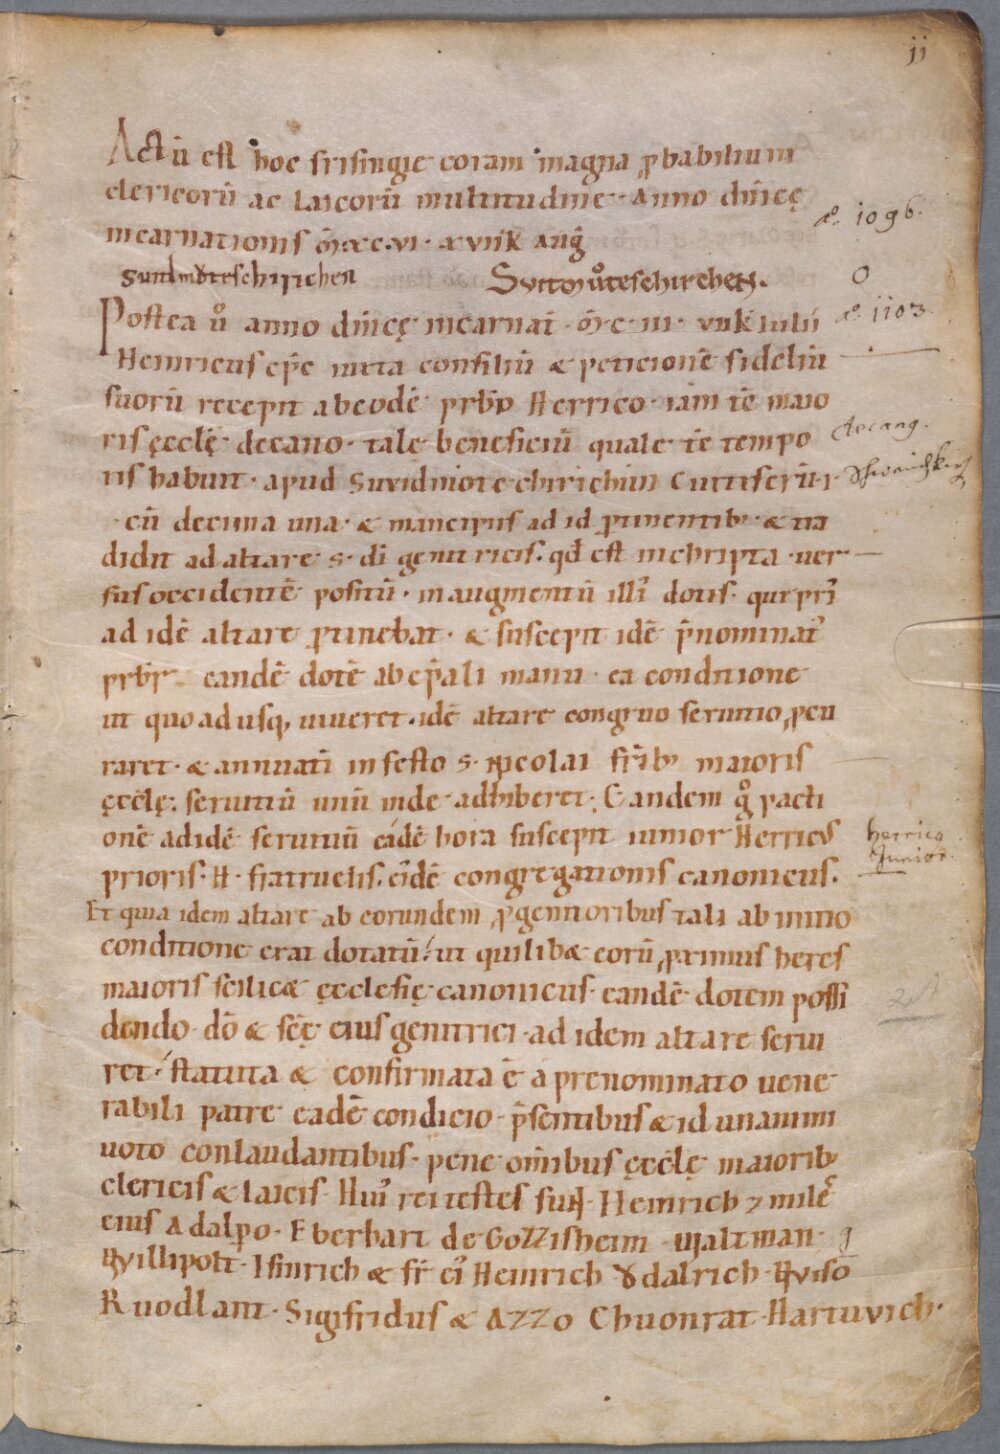 ii
Actū est hoc frisingie coram magna ꝓbabilium
clericorū ac laicorū multitudine· Anno dn̄icę
aͦ. 1096.
incarnationis m̄·xc·vi· xviik auḡ
O
Postea uͦ anno dn̄icę incarnat̄· m̄·c·iii· viik iulii
aͦ. 1103
Heinricus ep̄c iuxta consiliū & peticionē fideliū
suorū recepit ab eodē prb̄o Herrico· iam tē̄ maio
ris ęcclę̄ decano· tale beneficiū quale tē̄ tempo
decang.
ris habuit· apud Suvidmŏte chirichun Curtiferū·i·
·cū decima una· & mancipiis ad id ꝑtinentib; & tra
didit ad altare s· dī genitricis· qd̄ est in chripta uer
sus occidentē positū· in augmentū illi᾽ dotis· que pri᾽
ad idē altare ꝑtinebat· & suscepit idē p̄nominat᾽
prb̄r eandē dotē ab ep̄ali manu· ea conditione
ut quoadusq, uiueret· idē altare congruo seruitio ꝓcu
raret· & annuati̅ in festo s· nicolai fr̄ib; maioris
ęcclę̄· seruitiū unū inde adhiberet· Eandem g͛ pacti
onē ad idē seruitiū eadē hora suscepit iunior Herricus
herrico
Junior.
prioris· H· fratruelis· ei̅dē congregationis canonicus·
Et quia idem altare ab eorundem ꝓgenitoribus tali ab initio
conditione erat dotatū· ut quilib& eorū ꝓximus heres
maioris scilic& ęcclesię canonicus· eandē dotem possi
dendo· dō & sc̄ę eius genitrici· ad idem altare serui
ret· statuta & confirmata ē a prenominato uene
rabili patre eadē condicio· p̄sentibus & id unanimi
uoto conlaudantibus· pene om̄ibus ęcclę̄ maiorib;
clericis & laicis· Hui᾽ rei testes sunt· Heinrich 7 milēs
eius Adalpo· Eberhart de Gozzisheim· uualtman·
Willipolt· Isinrich & fr̄ ei᾽ Heinrich Ǒdalrich· Wiso
Ruodlant· Sigifridus & Azzo Chuonrat· Hartuvich·